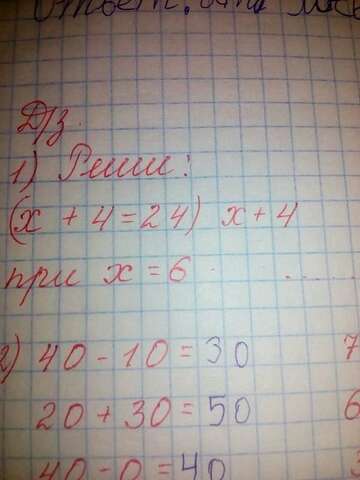 Ответ:
Д/з.
1) Реши:
(x + 4 = 24) x + 4
при x = 6 . . . . . .
2) 40 - 10 = 30 7
20 + 30 = 50 6
40 - 0 = 40 3